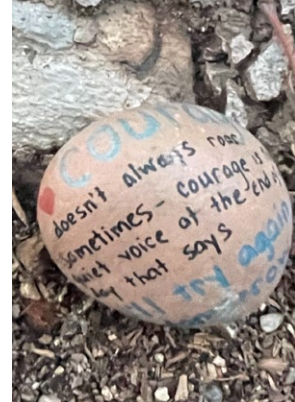 COURA
doesn't always roar
sometimes - courage is
quiet voice at the end
day that says
I'll try again